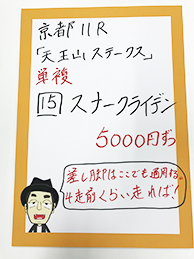 京都11R
「天王山ステークス」
単複
15 スナークライデン
5000円ずつ
差し脚はここでも通用する。
4走前くらい走れば!